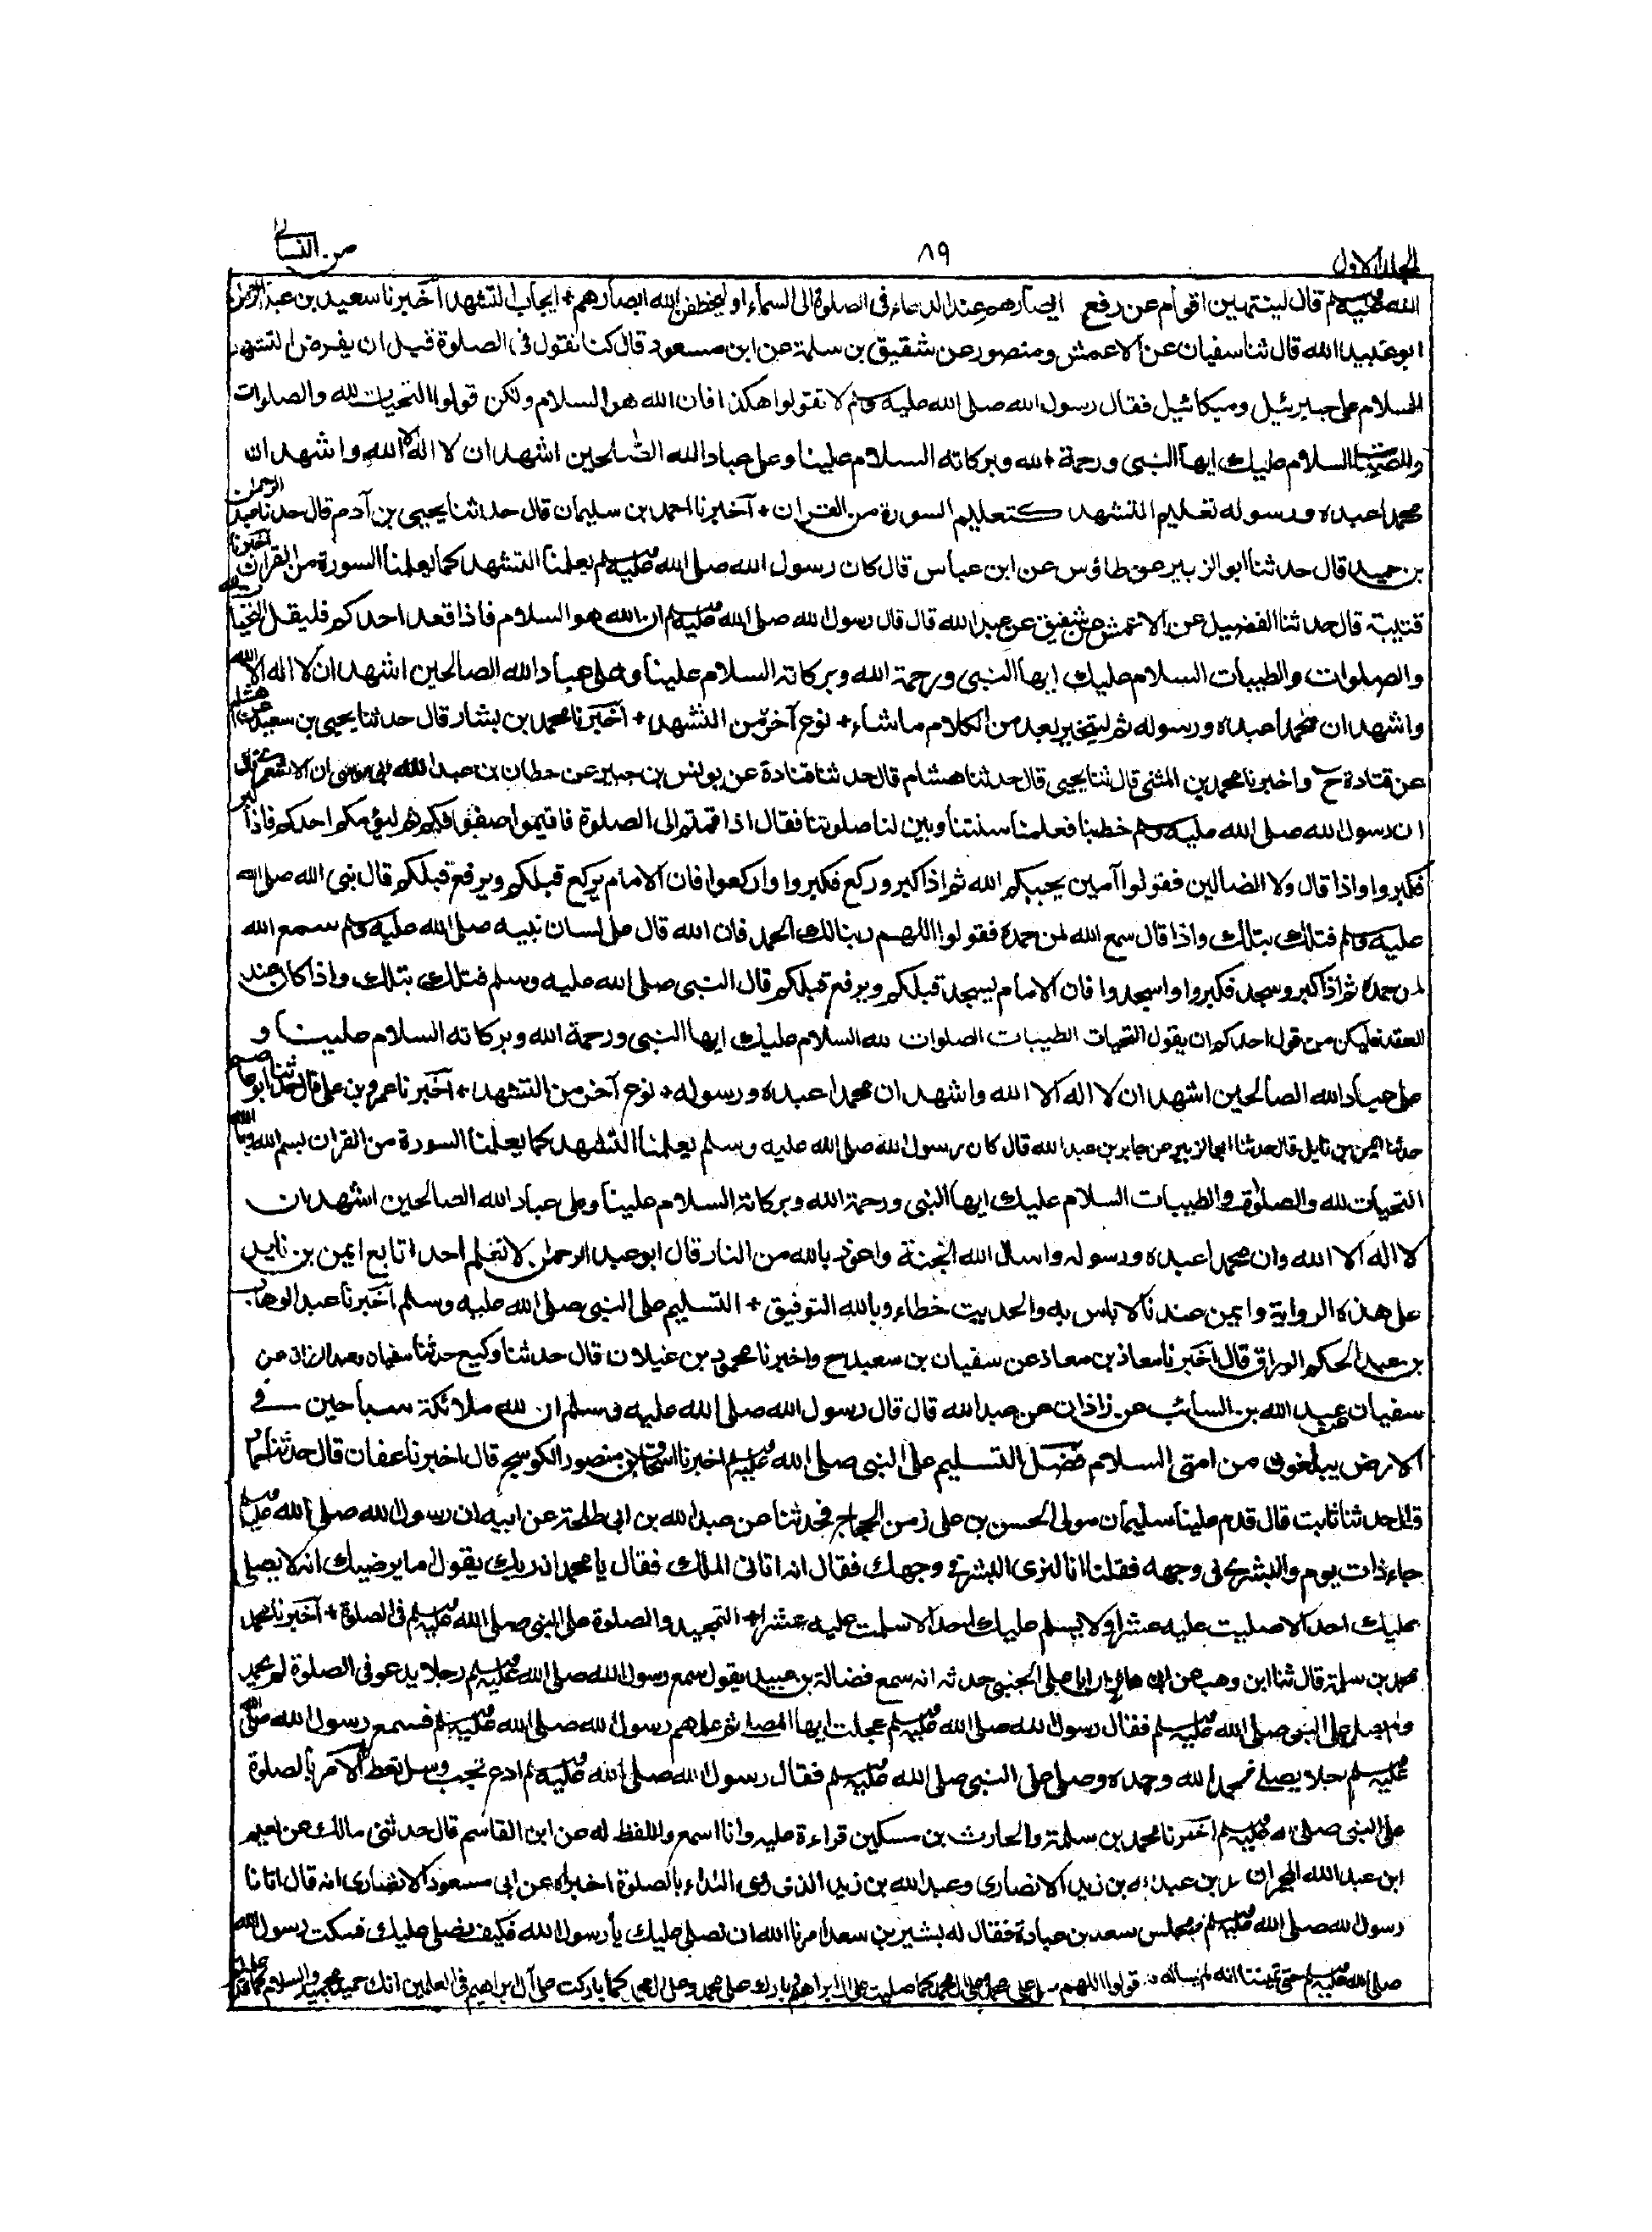 المجلد الاول
٨٩
من النسائي
الله عليه وسلم قال لينتهين اقوام عن رفع ابصارهم عند الدعاء فى الصلوة الى السماء او ليخطفن الله ابصارهم + ايجاب التشهد اخبرنا سعيد بن عبد الرحمن
ابو عبيد الله قال ثنا سفيان عن الاعمش ومنصور عن شقيق بن سلمة عن ابن مسعود قال كنا نقول فى الصلوة قبل ان يفرض التشهد
السلام على جبرئيل وميكائيل فقال رسول الله صلى الله عليه وسلم لا تقولوا هكذا فان الله هو السلام ولكن قولوا التحيات لله والصلوات
والطيبات السلام عليك ايها النبى ورحمة الله وبركاته السلام علينا وعلى عباد الله الصلحين اشهد ان لا اله الا الله واشهد ان
محمدا عبده ورسوله تعليم التشهد كتعليم السورة من القران + آخبرنا احمد بن سليمان قال حدثنا يحيى بن آدم قال حدثنا عبد الرحمن
بن حميد قال حدثنا ابو الزبير عن طاؤس عن ابن عباس قال كان رسول الله صلى الله عليه وسلم يعلمنا التشهد كما يعلمنا السورة من القران اخبرنا
قتيبة قال حدثنا الفضيل عن الاعمش عن شقيق عن عبد الله قال قال رسول الله صلى الله عليه وسلم ان الله هو السلام فاذا قعد احدكم فليقل التحيات لله
والصلوات والطيبات السلام عليك ايها النبى ورحمة الله وبركاته السلام علينا وعلى عباد الله الصالحين اشهد ان لا اله الا الله
واشهد ان محمدا عبده ورسوله ثم ليتخير بعد من الكلام ماشاء + نوع آخر من التشهد + آخبرنا محمد بن بشار قال حدثنا يحيى بن سعيد عن هشام
عن قتادة ح واخبرنا محمد بن المثنى قال ثنا يحيى قال حدثنا هشام قال حدثنا قتادة عن يونس بن جبير عن حطان بن عبد الله ان الاشعرى قال
ان رسول الله صلى الله عليه وسلم خطبنا فعلمنا سنتنا وبين لنا صلوتنا فقال اذا قمتم الى الصلوة فاقيموا صفوفكم ثم ليؤمكم احدكم فاذا كبر
فكبروا واذا قال ولا الضالين فقولوا آمين يجبكم الله ثم اذا كبر وركع فكبروا واركعوا فان الامام يركع قبلكم ويرفع قبلكم قال نبى الله صلى الله
عليه وسلم فتلك بتلك واذا قال سمع الله لمن حمده فقولوا اللهم ربنا لك الحمد فان الله قال على لسان نبيه صلى الله عليه وسلم سمع الله
لمن حمده ثم اذا كبر وسجد فكبروا واسجدوا فان الامام يسجد قبلكم ويرفع قبلكم قال النبى صلى الله عليه وسلم فتلك بتلك واذا كان عند
القعدة فليكن من قول احدكم ان يقول التحيات الطيبات الصلوات لله السلام عليك ايها النبى ورحمة الله وبركاته السلام علينا و
على عباد الله الصالحين اشهد ان لا اله الا الله واشهد ان محمدا عبده ورسوله + نوع آخر من التشهد + آخبرنا عمرو بن على قال حدثنا ابو عاصم
حدثنا ايمن بن نابل قال حدثنا ابو الزبير عن جابر بن عبد الله قال كان رسول الله صلى الله عليه وسلم يعلمنا التشهد كما يعلمنا السورة من القران بسم الله وبالله
التحيات لله والصلوات والطيبات السلام عليك ايها النبى ورحمة الله وبركاته السلام علينا وعلى عباد الله الصالحين اشهد ان
لا اله الا الله وان محمدا عبده ورسوله واسال الله الجنة واعوذ بالله من النار قال ابو عبد الرحمن لا نعلم احدا تابع ايمن بن نابل
على هذه الرواية وايمن عندنا لا باس به والحديث خطاء وبالله التوفيق + التسليم على النبى صلى الله عليه وسلم آخبرنا عبد الوهاب
بن عبد الحكم الوراق قال اخبرنا معاذ بن معاذ عن سفيان بن سعيد ح واخبرنا محمود بن غيلان قال حدثنا وكيع حدثنا سفيان وعبد الرزاق عن
سفيان عن عبد الله بن السائب عن زاذان عن عبد الله قال قال رسول الله صلى الله عليه وسلم ان لله ملائكة سياحين فى
الارض يبلغونى من امتى السلام فضل التسليم على النبى صلى الله عليه وسلم اخبرنا اسحاق بن منصور الكوسج قال اخبرنا عفان قال حدثنا حماد
قال حدثنا ثابت قال قدم علينا سليمان مولى الحسن بن على زمن الحجاج فحدثنا عن عبد الله بن ابى طلحة عن ابيه ان رسول الله صلى الله عليه وسلم
جاء ذات يوم والبشرى فى وجهه فقلنا انا لنرى البشرى فى وجهك فقال انه اتانى الملك فقال يا محمد ان ربك يقول اما يرضيك انه لا يصلى
عليك احد الا صليت عليه عشرا ولا يسلم عليك احد الا سلمت عليه عشرا + التمجيد والصلوة على النبى صلى الله عليه وسلم فى الصلوة + آخبرنا محمد
محمد بن سلمة قال ثنا ابن وهب عن ابى هانئ ان ابا على الجنبى حدثه انه سمع فضالة بن عبيد يقول سمع رسول الله صلى الله عليه وسلم رجلا يدعو فى الصلوة لم يحمد
ولم يصل على النبى صلى الله عليه وسلم فقال رسول الله صلى الله عليه وسلم عجلت ايها المصلى ثم علمهم رسول الله صلى الله عليه وسلم فسمع رسول الله صلى الله
عليه وسلم رجلا يصلى فمجد الله وحمده وصلى على النبى صلى الله عليه وسلم فقال رسول الله صلى الله عليه وسلم ادع تجب وسل تعط الامر بالصلوة
على النبى صلى الله عليه وسلم اخبرنا محمد بن سلمة والحارث بن مسكين قراءة عليه وانا اسمع واللفظ له عن ابن القاسم قال حدثنى مالك عن نعيم
ابن عبد الله المجمر ان محمد بن عبد الله بن زيد الانصارى وعبد الله بن زيد الذى ارى النداء بالصلوة اخبراه عن ابى مسعود الانصارى انه قال اتانا
رسول الله صلى الله عليه وسلم فى مجلس سعد بن عبادة فقال له بشير بن سعد امرنا الله ان نصلى عليك يا رسول الله فكيف نصلى عليك فسكت رسول الله
صلى الله عليه وسلم حتى تمنينا انه لم يساله قولوا اللهم صل على محمد وعلى ال محمد كما صليت على ال ابراهيم وبارك على محمد وعلى ال محمد كما باركت على آل ابراهيم فى العلمين انك حميد مجيد والسلام كما قد علمتم